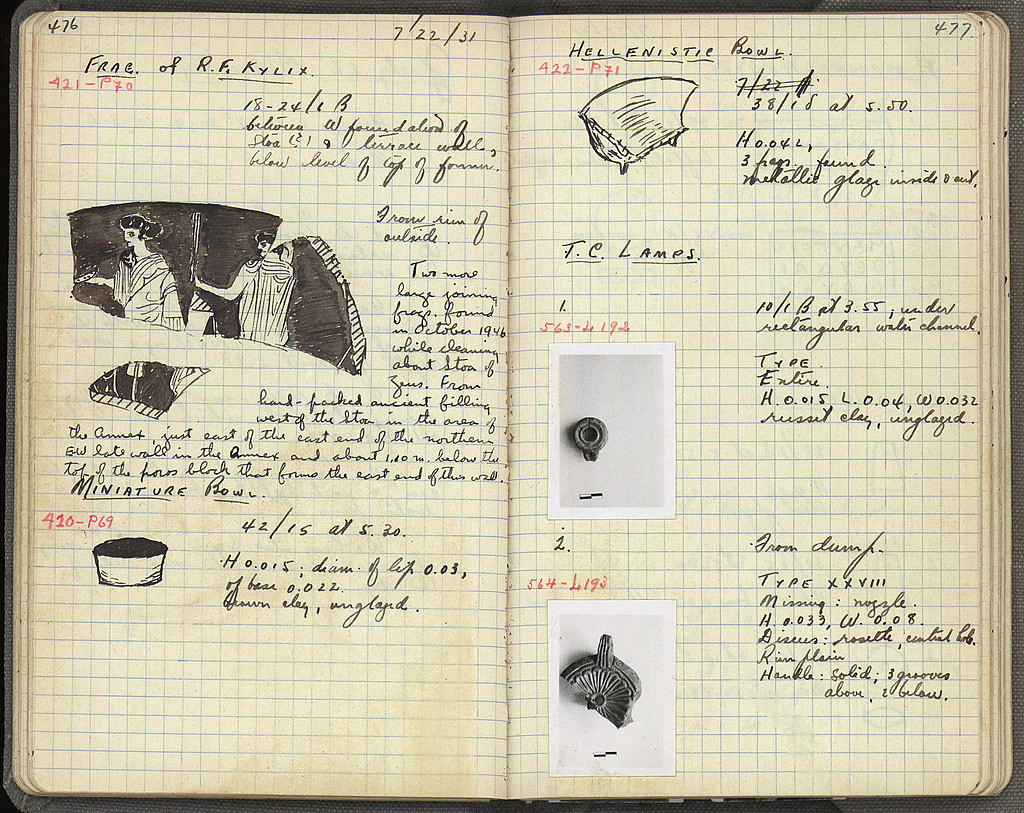 476
7/22/31
FRAG. of R.F. KYLIX.
421-P70
18-24/1 B
between W foundation of
Stoa (?) & terrace wall,
below level of top of former.
From rim of
outside.
Two more
large joining
frags. found
in October 1946
while cleaning
about Stoa of
Zeus. From
hard-packed ancient filling
west of the Stoa in the area of
the Annex, just east of the east end of the northern
EW late wall in the Annex and about 1.10 m. below the
top of the poros block that forms the east end of this wall.
MINIATURE BOWL.
420-P69
42/15 at 5.30.
H 0.015; diam. of lip 0.03,
of base 0.022.
brown clay, unglazed.
477
HELLENISTIC BOWL.
422-P71
7/22
38/18 at 5.50.
H 0.042,
3 frags. found.
metallic glaze inside & out.
T.C. LAMPS.
1.
563-L192
10/1 B at 3.55; under
rectangular water channel.
TYPE
Entire.
H. 0.015 L. 0.04, W 0.032
russet clay, unglazed.
2.
564-L193
From dump.
TYPE XXVIII
Missing: nozzle.
H. 0.033, W. 0.08.
Discus: rosette, central hole.
Rim plain
Handle: solid; 3 grooves
above, 2 below.